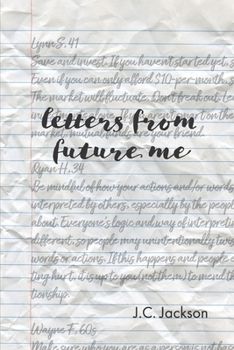 Lynn S. 41
Save and invest. If you haven't started yet, s
Even if you can only afford $10-per-month, s
The market will fluctuate. Don't break out, te
letters from
market, mutual funds are your friend.
future me
Ryan H. 34
Be mindful of how your actions and/or words
interpreted by others, especially by the people
about. Everyone's logic and way of interpretin
different, so people may unintentionally twis
words or actions. If this happens and people
ting hurt, it is up to you (not them) to mend th
tionship.
J.C. Jackson
Wayne F. 60s
Make sure who you are as a person is not bas